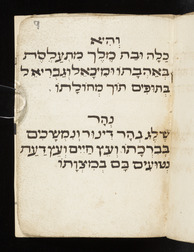 והיא
כלה ובת מלך מתעלסת
באהבתו ומיכאל וגבריאל
בתופים תוך מחולתו.
נהר
שילג נהר דינור ונמשכים
בברכתו ועץ חיים ועץ דעת
נטועים בם במצותו